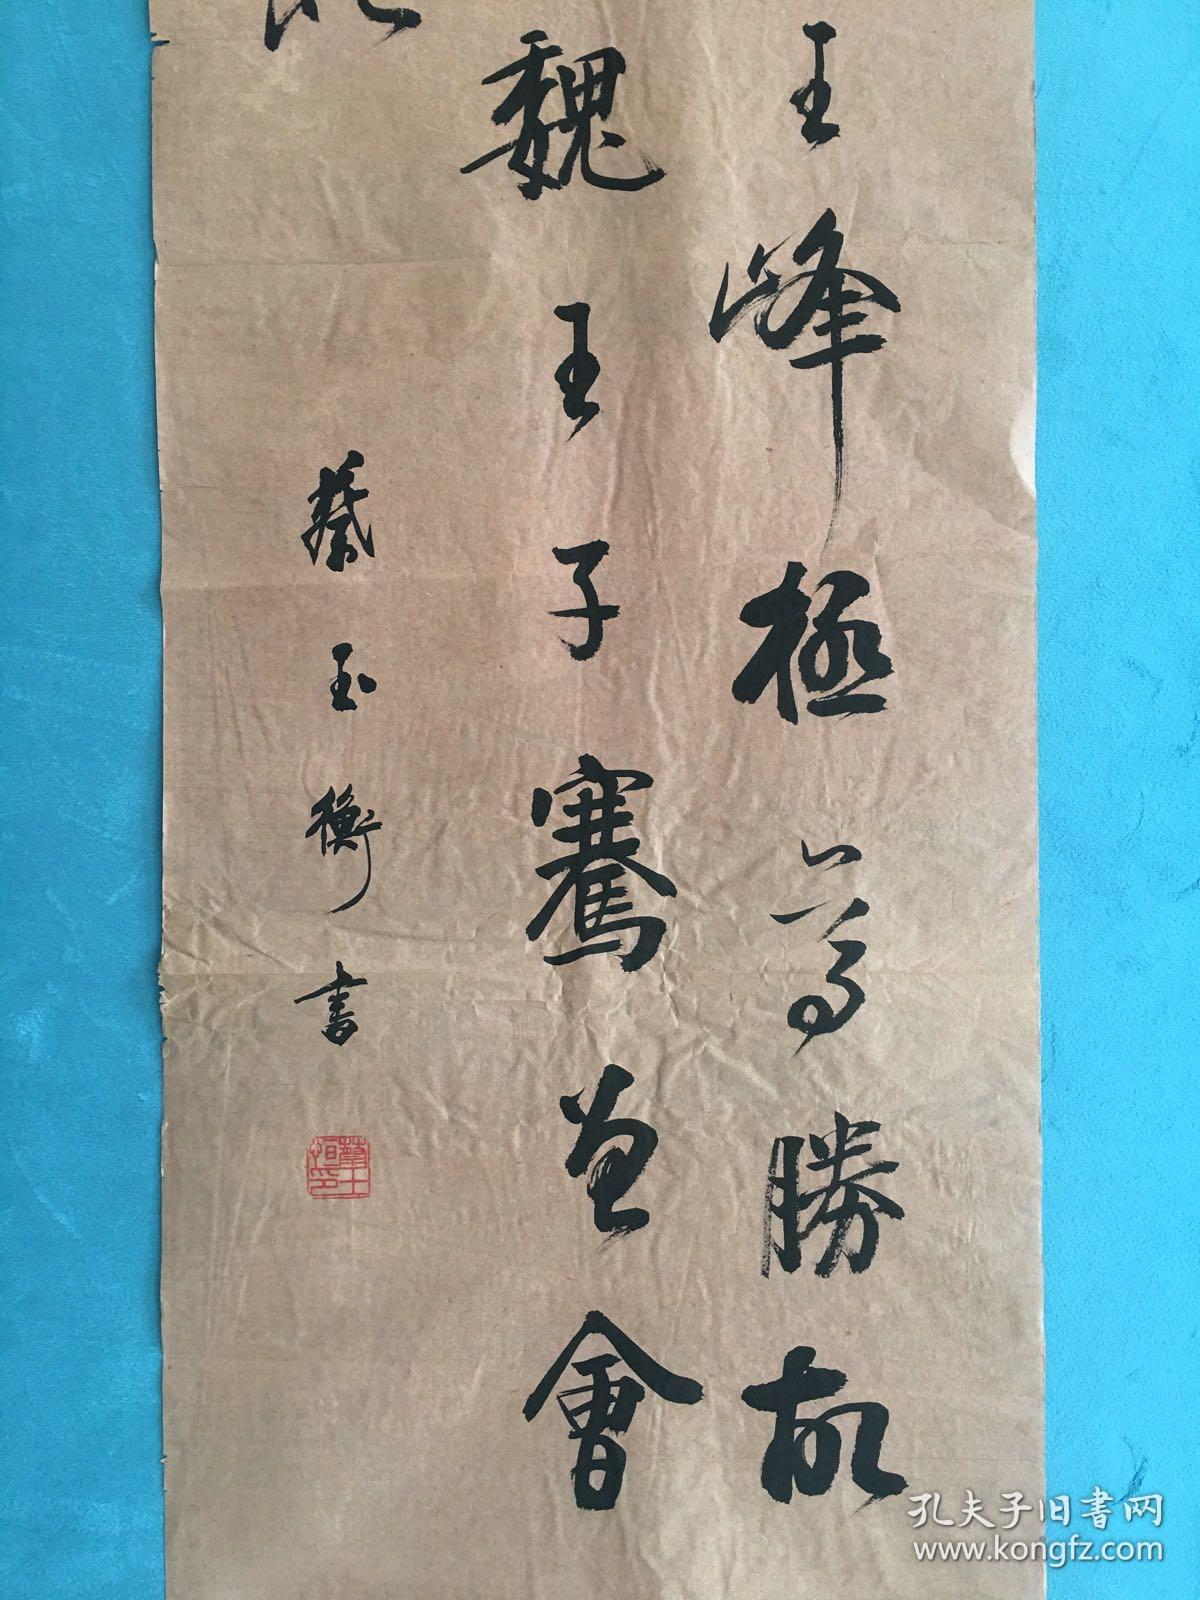 王峰極尊勝故
魏王子騫曾會
蔡玉衡书
孔夫子旧书网
www.kongfz.com